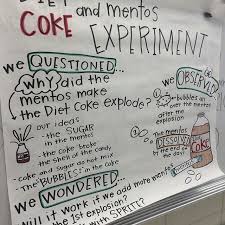 DIET and mentos
COKE EXPERIMENT
we QUESTIONED...
Why did the
mentos make
the Diet Coke explode?
our ideas
- the SUGAR
in the mentos
- the coke broke
the shell of the candy
- coke and sugar do not mix
- The "BUBBLES" in the coke
we OBSERVED
① bubbles all
over the mentos
after the
explosion
② The mentos
DISSOLVED
by the end of
the day!
COKE
we WONDERED...
Will it work if we add more mentos
the 1st explosion?
with SPRITE?